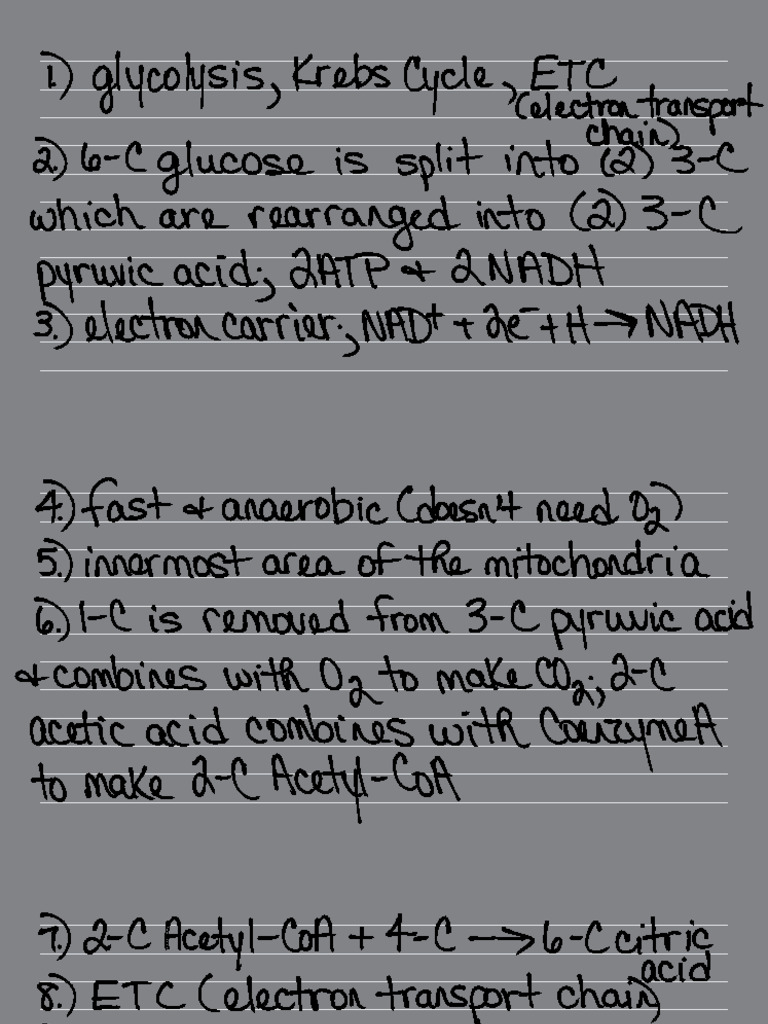 1.) glycolysis, Krebs Cycle, ETC
(electron transport
chain)
2.) 6-C glucose is split into (2) 3-C
which are rearranged into (2) 3-C
pyruvic acid; 2ATP & 2NADH
3.) electron carrier; NAD⁺ + 2e⁻ + H → NADH
4.) fast & anaerobic (doesn't need O₂)
5.) innermost area of the mitochondria
6.) 1-C is removed from 3-C pyruvic acid
& combines with O₂ to make CO₂; 2-C
acetic acid combines with CoenzymeA
to make 2-C Acetyl-CoA
7.) 2-C Acetyl-CoA + 4-C → 6-C citric
acid
8.) ETC (electron transport chain)